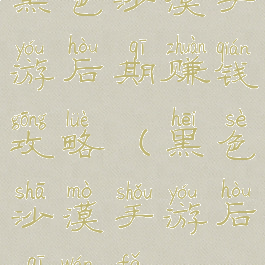 黑色沙漠手
yóu hòu qī zhuàn qián
游后期赚钱
gōng lüè hēi sè
攻略(黑色
shā mò shǒu yóu hòu
沙漠手游后
qī wán fǎ